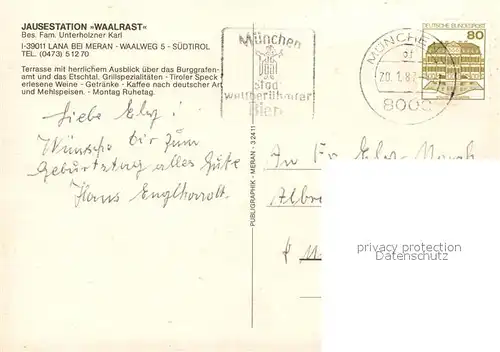 JAUSESTATION »WAALRAST«
Bes. Fam. Unterholzner Karl
I-39011 LANA BEI MERAN - WAALWEG 5 - SÜDTIROL
TEL. (0473) 51270
Terrasse mit herrlichem Ausblick über das Burggrafen-
amt und das Etschtal. Grillspezialitäten - Tiroler Speck
erlesene Weine - Getränke - Kaffee nach deutscher Art
und Mehlspeisen. - Montag Ruhetag.
München
Stadt
weltberühmter
Biere
MÜNCHEN
20.1.87
8000
DEUTSCHE BUNDESPOST
80
Liebe Elsy!
Wünsche Dir zum
Geburtstag alles Gute
Hans
PUBLIGRAPHIK - MERAN - 3 24 11
protected by copyright